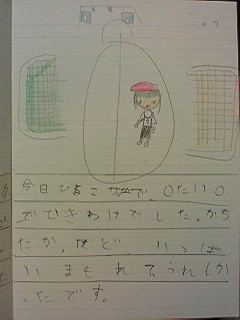 今日ひよこ で、0たい0
でひきわけでした。かち
たか けど、いっぱ
いまもれてうれしか
ったです。